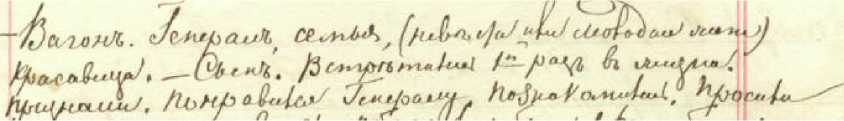 — Вагонъ. Генералъ, семья, (невѣста или молодая жена)
Красавица. — Сынъ. Встрѣтились 1й разъ въ жизни.
Признали. Понравился Генералу. Познакомились. Просила